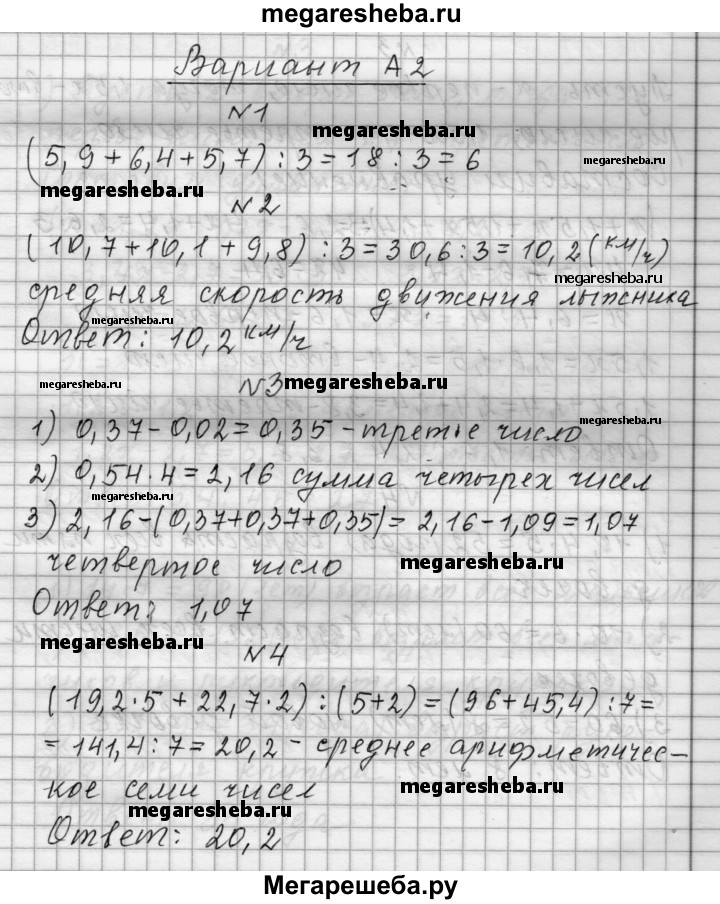 megaresheba.ru
Вариант А2
№1
megaresheba.ru
(5,9+6,4+5,7):3=18:3=6
megaresheba.ru
megaresheba.ru
№2
(10,7+10,1+9,8):3=30,6:3=10,2(км/ч)
megaresheba.ru
средняя скорость движения лыжника
megaresheba.ru
Ответ: 10,2 км/ч
megaresheba.ru
№3
megaresheba.ru
1) 0,37-0,02=0,35-третье число
megaresheba.ru
2) 0,54·4=2,16 сумма четырех чисел
megaresheba.ru
3) 2,16-(0,37+0,37+0,35)=2,16-1,09=1,07
четвертое число
megaresheba.ru
Ответ: 1,07
megaresheba.ru
№4
(19,2·5+22,7·2):(5+2)=(96+45,4):7=
=141,4:7=20,2-среднее арифметичес-
кое семи чисел
megaresheba.ru
megaresheba.ru
Ответ: 20,2
Мегарешеба.ру